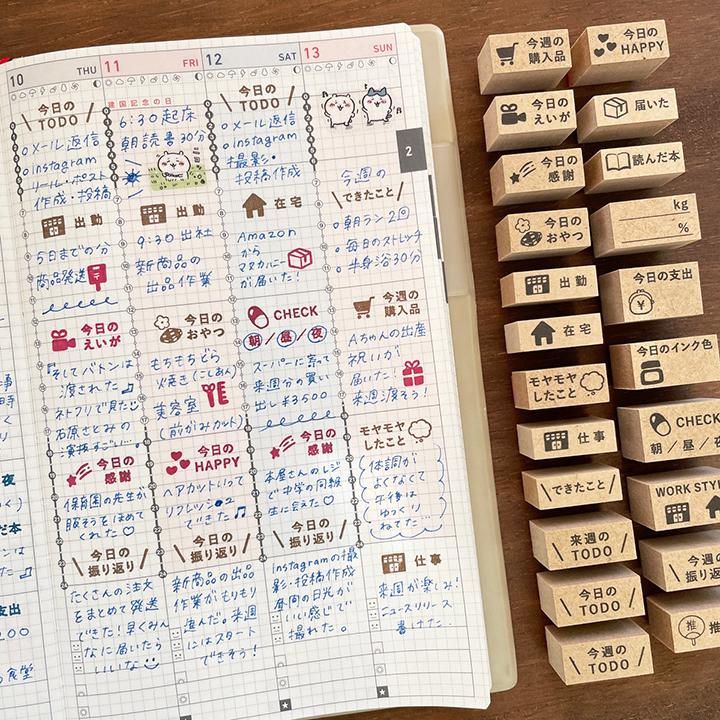 10 THU
11 FRI
12 SAT
13 SUN
建国記念の日
2
今日の
TODO
○メール返信
○instagram
リール・ポスト
作成・投稿
出勤
5日までの分
商品発送
今日の
えいが
『そしてバトンは
渡された』
ネトフリで見た
石原さとみの
演技すごい…。
今日の
感謝
保育園の先生が
服そうをほめて
くれた♡
今日の
振り返り
たくさんの注文
をまとめて発送
できた!早くみんな
なに届いたら
いいな
6:30 起床
朝読書30分
出勤
9:30 出社
新商品の
出品作業
今日の
おやつ
もちもちどら
焼き(こしあん)
美容室
(前がみカット)
今日の
HAPPY
ヘアカットいって
リフレッシュ
できた♪
今日の
振り返り
新商品の出品
作業がもりもり
進んだ。来週
にはスタート
できそう!
今日の
TODO
○メール返信
○instagram
撮影・
投稿作成
在宅
Amazon
から
マヌカハニー
が届いた!
CHECK
朝/昼/夜
スーパーに寄って
来週分の買い
出し¥3500
今日の
感謝
本屋さんのレジ
で中学の同級
生に会えた♡
今日の
振り返り
instagramの撮
影・投稿作成
昼間の日光が
いい感じで
撮れた。
今週の
できたこと
○朝ラン2回
○毎日のストレッチ
○半身浴30分
今週の
購入品
Aちゃんの出産
祝いが
届いた!
来週渡そう!
モヤモヤ
したこと
体調が
よくなくて
午後は
ゆっくり
ねてた
仕事
来週が楽しみ!
ニュースリリース
書けた.
今週の
購入品
今日の
えいが
今日の
感謝
今日の
おやつ
出勤
在宅
モヤモヤ
したこと
仕事
できたこと
来週の
TODO
今日の
TODO
今週の
TODO
今日の
HAPPY
届いた
読んだ本
kg
%
今日の支出
¥
今日のインク色
CHECK
朝/昼/夜
WORK STY
今週の
振り返
推
推